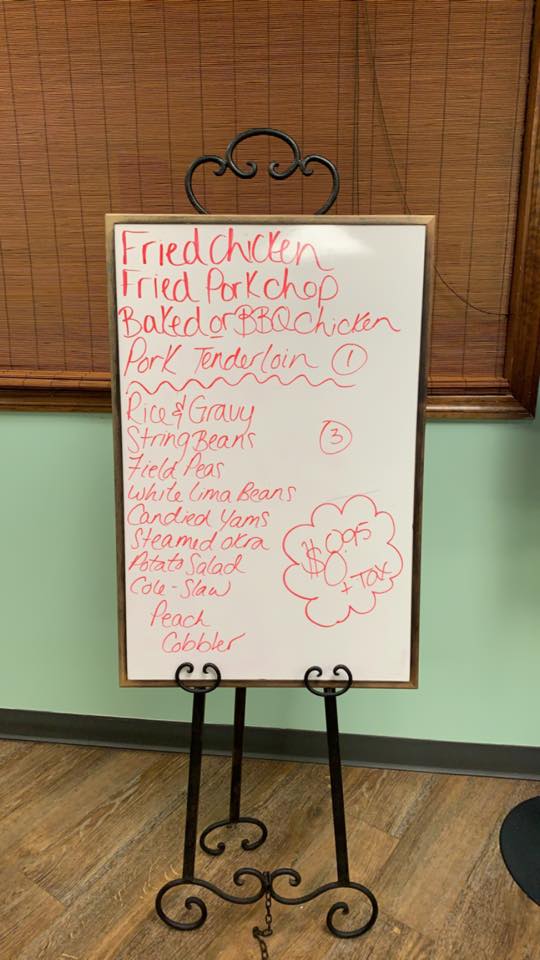 Fried Chicken
Fried Pork chop
Baked or BBQ Chicken
Pork Tenderloin 1
Rice & Gravy
String Beans
3
Field Peas
White Lima Beans
Candied Yams
Steamed okra
Potato Salad
Cole-Slaw
$8.95
+ Tax
Peach
Cobbler